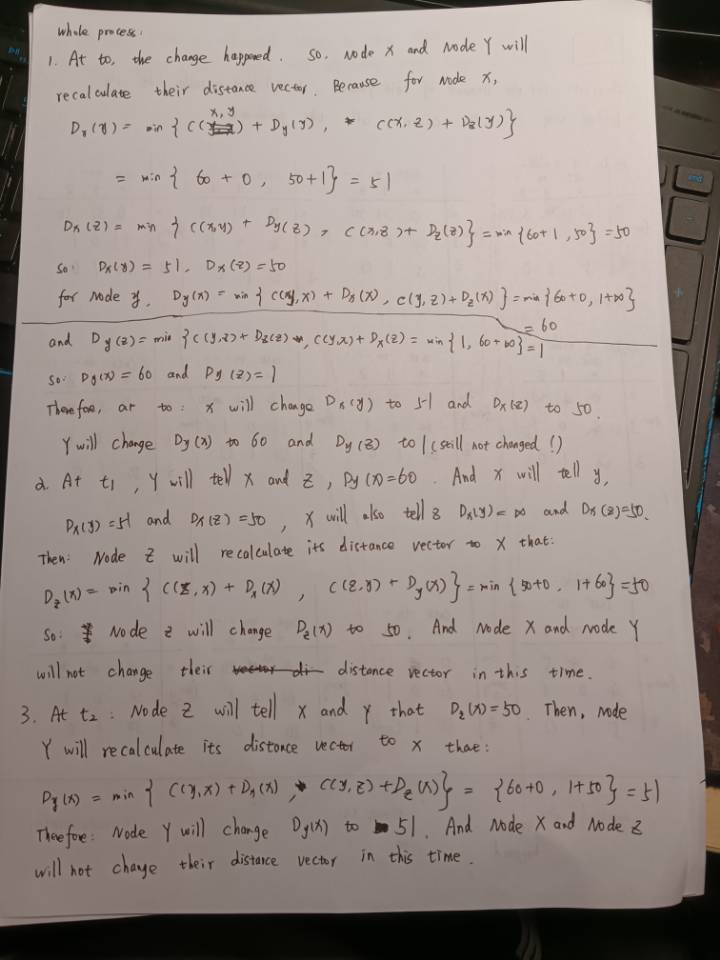 whole process:
1. At to, the change happened. So, Node X and Node Y will
recalculate their distance vector. Because for Node X,
x, y
Dx(y) = min { C() + Dy(y), C(x, z) + Dz(y)}
= min { 60 + 0, 50+1} = 51
Dx(z) = min { C(x,y) + Dy(z), C(x,z) + Dz(z)} = min {60+1, 50} = 50
So: Dx(y) = 51, Dx(z) = 50
for Node y, Dy(x) = min { C(y, x) + Dx(x), C(y, z) + Dz(x) } = min {60+0, 1+∞}
= 60
and Dy(z) = min {C(y,z) + Dz(z), C(y,x) + Dx(z) = min {1, 60+∞} = 1
So: Dy(x) = 60 and Dy(z) = 1
Therefore, at to: X will change Dx(y) to 51 and Dx(z) to 50.
Y will change Dy(x) to 60 and Dy(z) to 1 (still not changed!)
2. At t1, Y will tell X and Z, Dy(x) = 60. And X will tell y,
Dx(y) = 51 and Dx(z) = 50, X will also tell z Dx(y) = ∞ and Dx(z) = 50.
Then: Node Z will recalculate its distance vector to X that:
Dz(x) = min { C(z, x) + Dx(x), C(z, y) + Dy(x)} = min {50+0, 1+60} = 50
So: Node z will change Dz(x) to 50. And Node X and Node Y
will not change their vector di distance vector in this time.
3. At t2: Node Z will tell X and Y that Dz(x) = 50. Then, Node
Y will recalculate its distance vector to X that:
Dy(x) = min { C(y,x) + Dx(x), C(y,z) + Dz(x)} = {60+0, 1+50} = 51
Therefore: Node Y will change Dy(x) to 51. And Node X and Node Z
will not change their distance vector in this time.
end